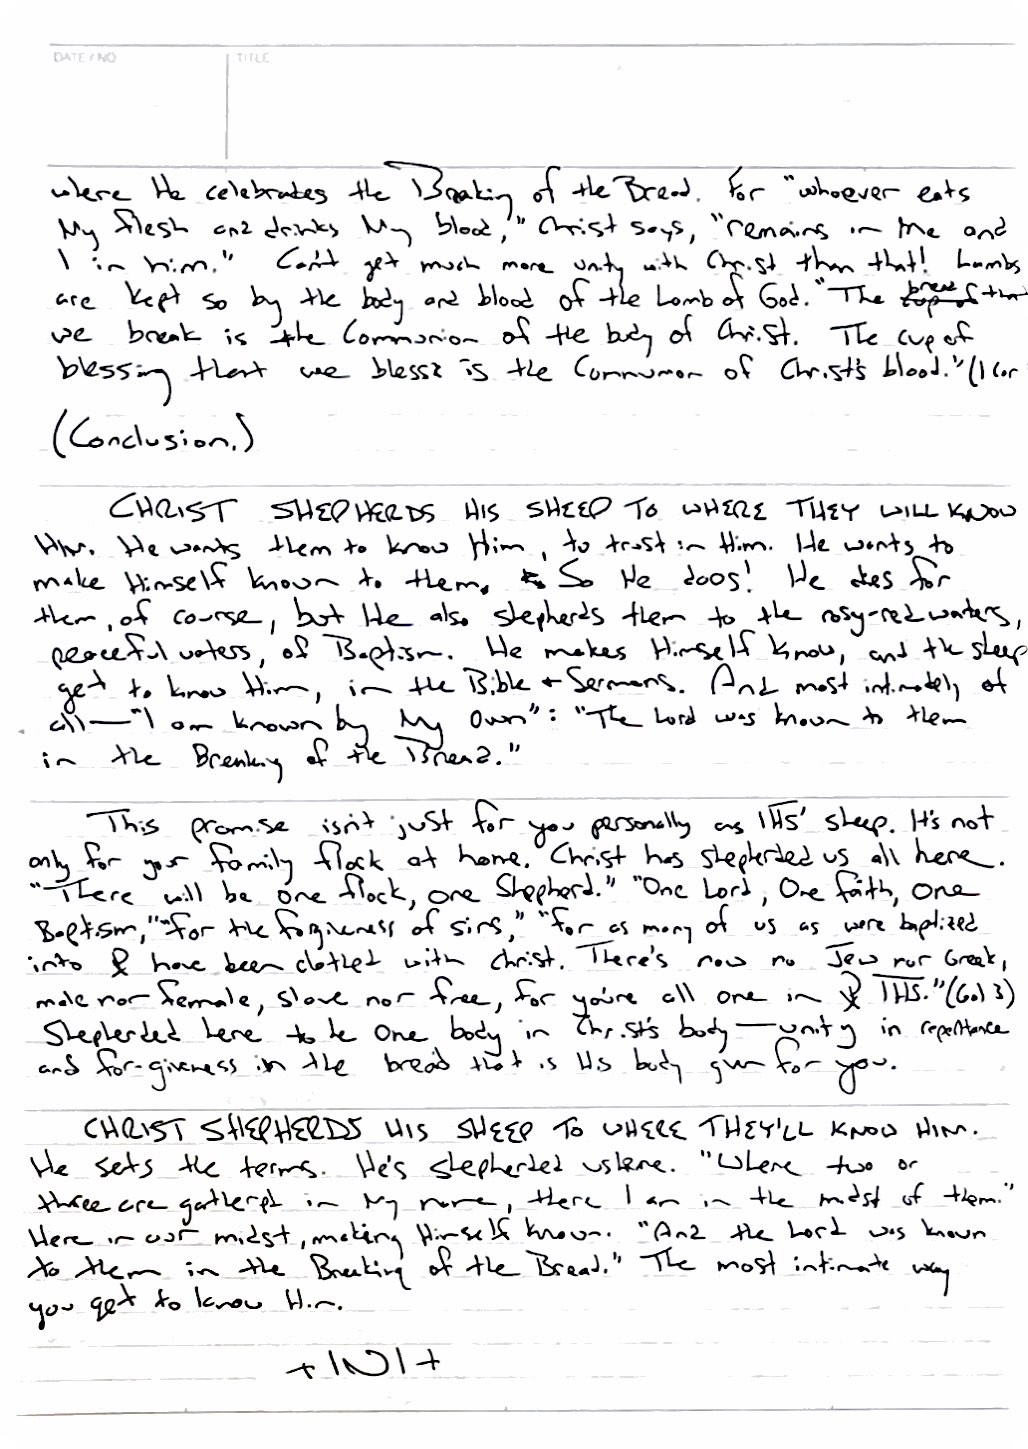 DATE / NO TITLE
where He celebrates the Breaking of the Bread. For "whoever eats
My flesh and drinks My blood," Christ says, "remains in Me and
I in him." Can't get much more unity with Christ than that! Lambs
are kept so by the body and blood of the Lamb of God. "The bread that
we break is the Communion of the body of Christ. The cup of
blessing that we bless is the Communion of Christ's blood." (1 Cor
(Conclusion.)
CHRIST SHEPHERDS HIS SHEEP TO WHERE THEY WILL KNOW
HIM. He wants them to know Him, to trust in Him. He wants to
make Himself known to them. So He does! He dies for
them, of course, but He also shepherds them to the rosy-red waters,
peaceful waters, of Baptism. He makes Himself know, and the sheep
get to know Him, in the Bible + Sermons. And most intimately of
all—"I am known by My Own": "The Lord was known to them
in the Breaking of the Bread."
This promise isn't just for you personally as IHS' sheep. It's not
only for your family flock at home. Christ has shepherded us all here.
"There will be one flock, one Shepherd." "One Lord, One faith, one
Baptism," "for the forgiveness of sins," "for as many of us as were baptized
into ☧ have been clothed with Christ. There's now no Jew nor Greek,
male nor female, slave nor free, for you're all one in ☧ IHS." (Gal 3)
Shepherded here to be One body in Christ's body—unity in repentance
and for-giveness in the bread that is His body given for you.
CHRIST SHEPHERDS HIS SHEEP TO WHERE THEY'LL KNOW HIM.
He sets the terms. He's shepherded us here. "Where two or
three are gathered in My name, there I am in the midst of them."
Here in our midst, making Himself known. "And the Lord was known
to them in the Breaking of the Bread." The most intimate way
you get to know Him.
+ INI +